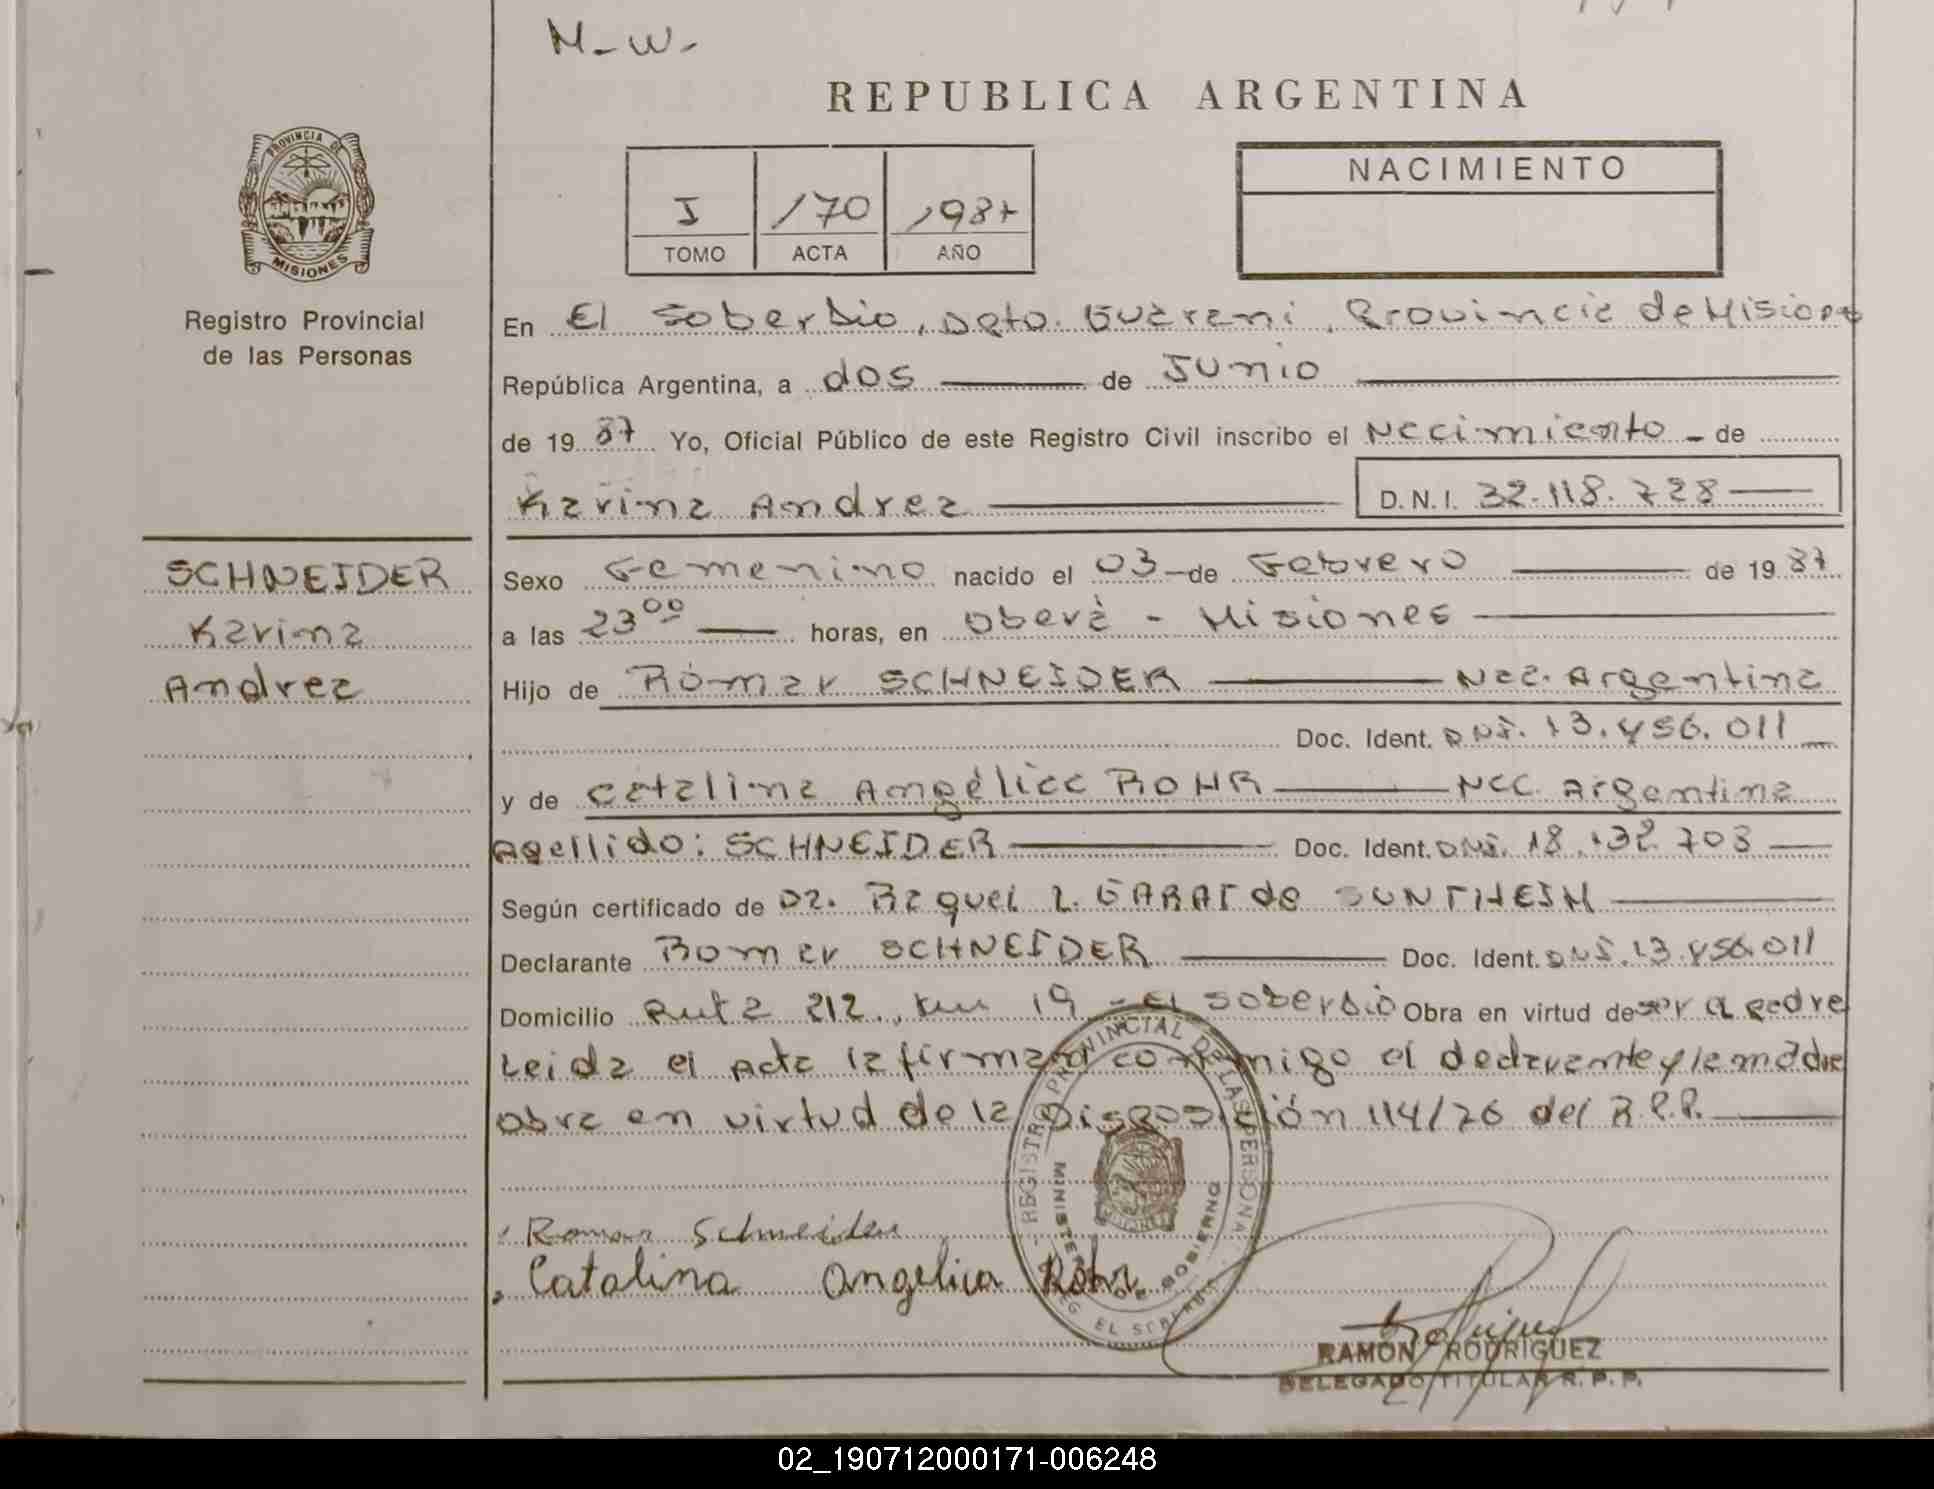 M-W-
REPUBLICA ARGENTINA
PROVINCIA DE
MISIONES
Registro Provincial
de las Personas
I 170 1987
TOMO ACTA AÑO
NACIMIENTO
En El Soberbio, Dpto. Guarani, Provincia de Misiones
República Argentina, a dos de Junio
de 1987 Yo, Oficial Público de este Registro Civil inscribo el Nacimiento - de
Karina Andrea D.N.I. 32.118.728
SCHNEIDER
Karina
Andrea
Sexo Femenino nacido el 03 de Febrero de 1987
a las 23 00 horas, en Oberá - Misiones
Hijo de Romar SCHNEIDER Nac. Argentina
Doc. Ident. DNI. 13.456.011
y de Catalina Angélica ROHR Nac. Argentina
Apellido: SCHNEIDER Doc. Ident. DNI. 18. 708
Según certificado de Dr. Raquel L. GARAT de SUNTHEIM
Declarante Romar SCHNEIDER Doc. Ident. DNI. 13.456.011
Domicilio Ruta 212, km 19 - El Soberbio Obra en virtud de ser el padre
Leida el Acta la firman conmigo el declarante y la madre
obra en virtud de la Disposición 114/76 del R.P.P.
REGISTRO PROVINCIAL DE LAS PERSONAS
MINISTERIO DE GOBIERNO
EL SOBERBIO
Romar Schneider
Catalina Angelica Röhr
RAMON RODRIGUEZ
DELEGADO TITULAR R. P. P.
02_190712000171-006248